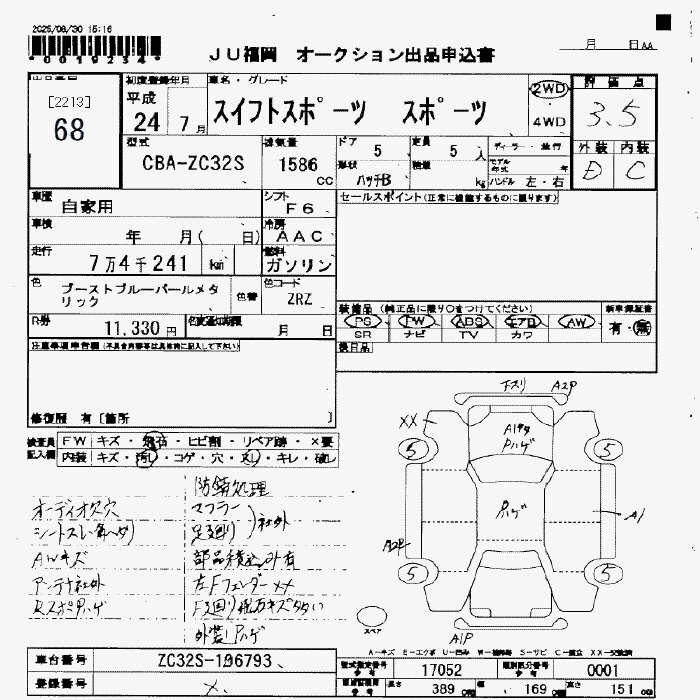 2025/08/30 15:16
*0019234*
JU福岡 オークション出品申込書
月 日 AA
[2213]
68
初度登録年月
平成
24 7月
車名・グレード
スイフトスポーツ スポーツ
2WD
4WD
評価点
3.5
型式
CBA-ZC32S
排気量
1586
CC
ドア
5
定員
5
人
形状
ハッチB
積載
kg
ディーラー・並行
モデル年式 年
ハンドル 左・右
外装 内装
D C
車歴
自家用
シフト
F6
セールスポイント(正常に機能するものに限ります)
車検
年 月( 日)
冷房
AAC
走行
7万4千241 km
燃料
ガソリン
色
ブーストブルーパールメタリック
色替
色コード
ZRZ
装備品(純正品に限り○をつけてください)
新車保証書
PS PW ABS エアB AW
有・無
SR ナビ TV カワ
R券
11,330円
名変通知期限
月 日
後日品
注意事項申告欄(不具合内容等は具体的に記入して下さい)
修復歴 有[箇所 ]
検査員記入欄
FW キズ・飛石・ヒビ割・リペア跡・×要
内装 キズ・汚れ・コゲ・穴・スレ・キレ・破レ
防錆処理
オーディオ欠穴
マフラー
足廻り
社外
AWキズ
部品積込み外有
アンテナ社外
左Fフェンダー××
外装Pハゲ
下スリ A2P
××
Pハゲ
5 5
Pハゲ
A1
A2P
5 5
スペア
A1P
A-キズ E-エクボ U-凹み W-補修跡 S-サビ C-腐食 XX-交換済
車台番号
ZC32S-106793
登録番号
型式指定番号
参考
17052
類別区分番号
参考
0001
長さ
389
幅
169
高さ
151